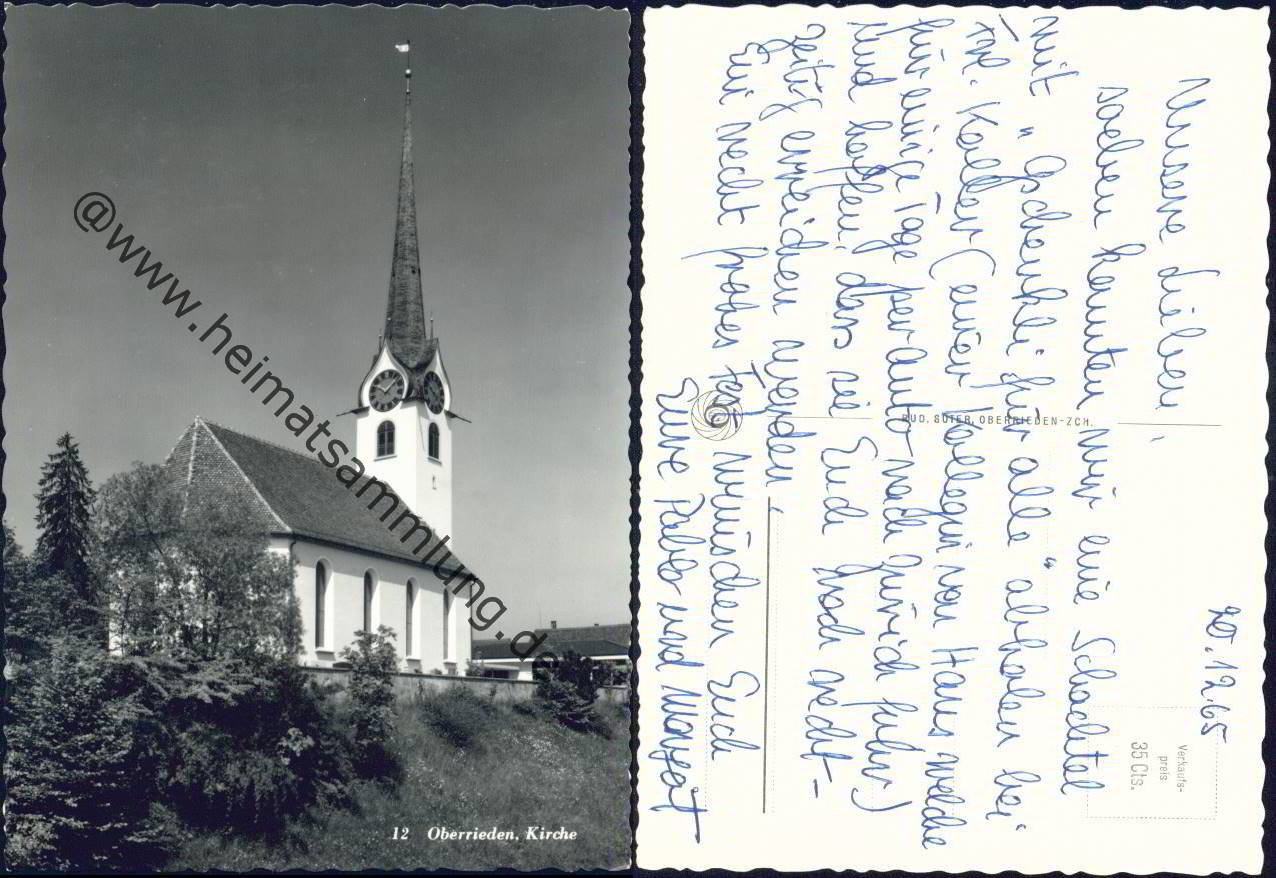 @www.heimatsammlung.de
12 Oberrieden, Kirche
20.12.65
Unsere Lieben,
soeben konnten wir eine Schachtel
mit "Gschenkli für alle" abholen bei
Frl. Koller (einer Kollegin von Hans welche
für einige Tage per auto nach Zürich fuhr)
und hoffen, dass sie Euch noch recht-
zeitig erreichen werden.
Ein recht frohes Fest wünschen Euch
Eure Pablo und Margrit
RUD. SUTER, OBERRIEDEN-ZCH.
Verkaufs-
preis
35 Cts.